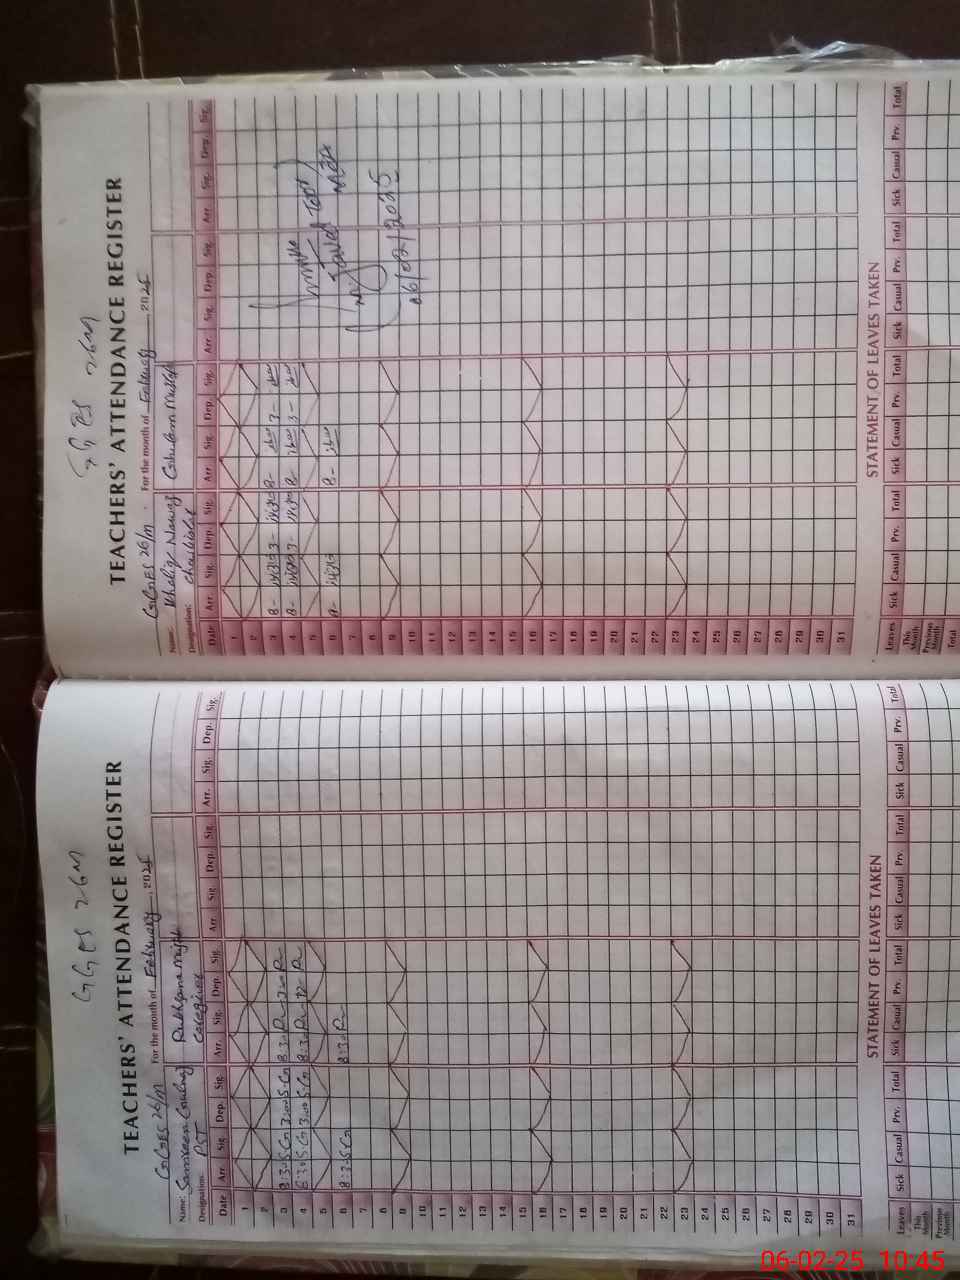 GGES 26M
TEACHERS' ATTENDANCE REGISTER
GGES 26/M For the month of February, 2025
Name: Samreen Gulnaz
Designation: PST caregiver
Date Arr. Sig. Dep. Sig. Arr. Sig. Dep. Sig. Arr. Sig. Dep. Sig. Arr. Sig. Dep. Sig.
1
2
3 8:30 SG 3:00 SG 8:30
4 8:30 SG 3:00 SG 8:30
5
6 8:30 SG 8:30
7
8
9
10
11
12
13
14
15
16
17
18
19
20
21
22
23
24
25
26
27
28
29
30
31
STATEMENT OF LEAVES TAKEN
Leaves Sick Casual Prv. Total Sick Casual Prv. Total Sick Casual Prv. Total Sick Casual Prv. Total
This Month
Previous Month
Total
GGES 26M
TEACHERS' ATTENDANCE REGISTER
GGES 26/M For the month of February, 2025
Name: Khaliq Nawaz Ghulam
Designation:
Date Arr. Sig. Dep. Sig. Arr. Sig. Dep. Sig. Arr. Sig. Dep. Sig. Arr. Sig. Dep. Sig.
1
2
3 8- 3- 8-
4 8- 8- 3-
5
6 8- 8-
7
8
9
10
11
12
13
14
15
16
17
18
19
20
21
22
23
24
25
26
27
28
29
30
31
06/02/2025
STATEMENT OF LEAVES TAKEN
Leaves Sick Casual Prv. Total Sick Casual Prv. Total Sick Casual Prv. Total Sick Casual Prv. Total
This Month
Previous Month
Total
06-02-25 10:45